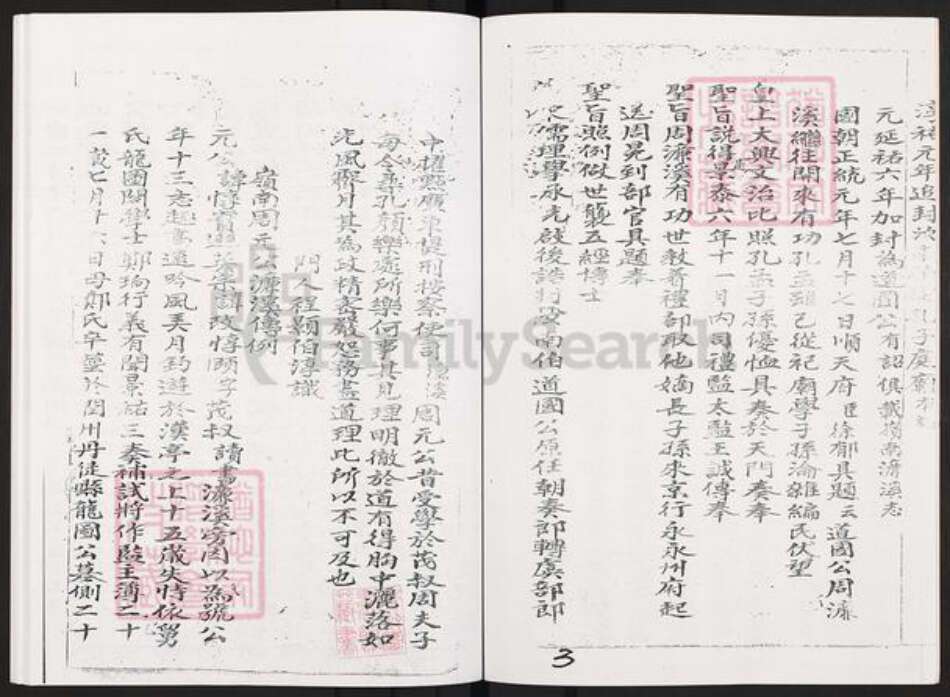 元年追封汝
元延祐六年加封為道國公有詔俱載嶺南濟溪志
國朝正統元年七月十七日順天府臣徐郁具題云道國公周濂
溪繼往開來有功孔孟頭已從祀廟學子孫淪雜編民伏望
皇上大興文治比照孔孟子孫優恤具奏於天門奏奉
聖旨說得是景泰六年十一月內司禮監太監王誠傳奉
聖旨周濂溪有功世教着禮部取他嫡長子孫來京行永永州府起
送周冕到部官具題奉
聖旨照例做世襲五經博士
儒理學永光啟後誥封汝南伯道國公原任朝奏郎轉虞部郎
3
中擢點廣東提刑按察使司 周元公昔受學於茂叔周夫子
每令尋孔顏樂處所樂何事其見理明徹於道有得胸中灑落如
光風霽月其為政精密嚴恕務盡道理此所以不可及也
門人程顥伯淳識
嶺南周元公濂溪傳例
元公諱惇實 惇頤字茂叔讀書濂溪旁因以為號公
年十三志趣高遠吟風美月釣遊於濱亭之上十五歲失恃依舅
氏龍圖閣學士鄭珦行義有聞景祐三奏補試將作監主簿二十
一歲七月十六日母鄭氏卒塟於閏州丹徒縣龍圖公墓側二十
FamilySearch